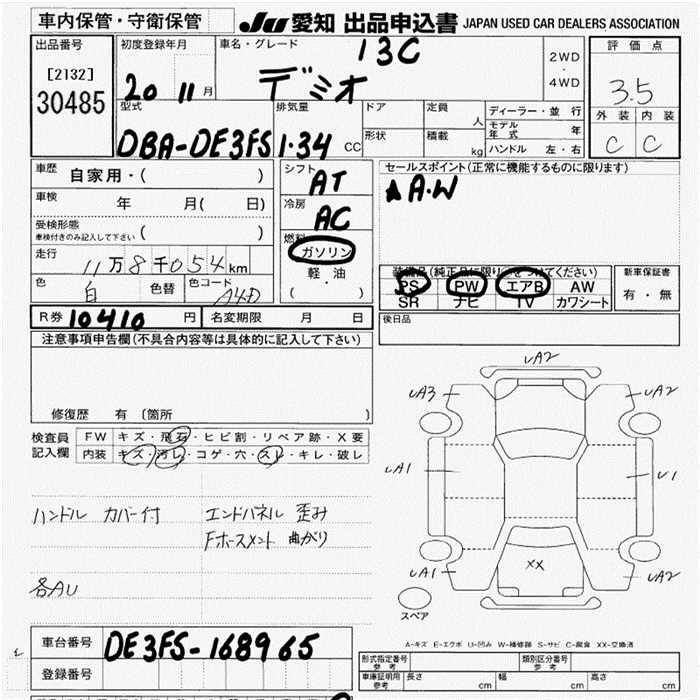 車内保管・守衛保管
JU 愛知 出品申込書 JAPAN USED CAR DEALERS ASSOCIATION
出品番号
[2132]
30485
初度登録年月
20 11月
車名・グレード
13C
デミオ
2WD
・
4WD
評価点
3.5
外装 内装
C C
型式
DBA-DE3FS
排気量
1.34 CC
ドア
形状
定員 人
積載 kg
ディーラー・並行
モデル年式 年
ハンドル 左・右
車歴
自家用・( )
車検
年 月( 日)
受検形態
車検付きのみ記入して下さい ( )
走行
11万8千054km
色
白
色替
色コード
A4D
シフト
AT
冷房
AC
燃料
ガソリン
・
軽油
・
( )
セールスポイント(正常に機能するものに限ります)
★A.W
装備品(純正品に限り○をつけてください)
PS PW エアB AW
SR ナビ TV カワシート
新車保証書
有・無
R券 10410 円
名変期限 月 日
後日品
注意事項申告欄(不具合内容等は具体的に記入して下さい)
修復歴 有 〔箇所 〕
検査員
記入欄
FW キズ・飛石・ヒビ割・リペア跡・X要
内装 キズ・汚レ・コゲ・穴・スレ・キレ・破レ
ハンドル カバー付 エンドパネル 歪み
Fホースメント 曲がり
各AU
UA2
UA3
UA2
UA1
U1
XX
UA1
UA2
スペア
A-キズ E-エクボ U-凹み W-補修跡 S-サビ C-腐食 XX-交換済
車台番号
DE3FS-168965
登録番号
形式指定番号
参考
類別区分番号
参考
車庫証明用
参考
長さ cm
幅 cm
高さ cm